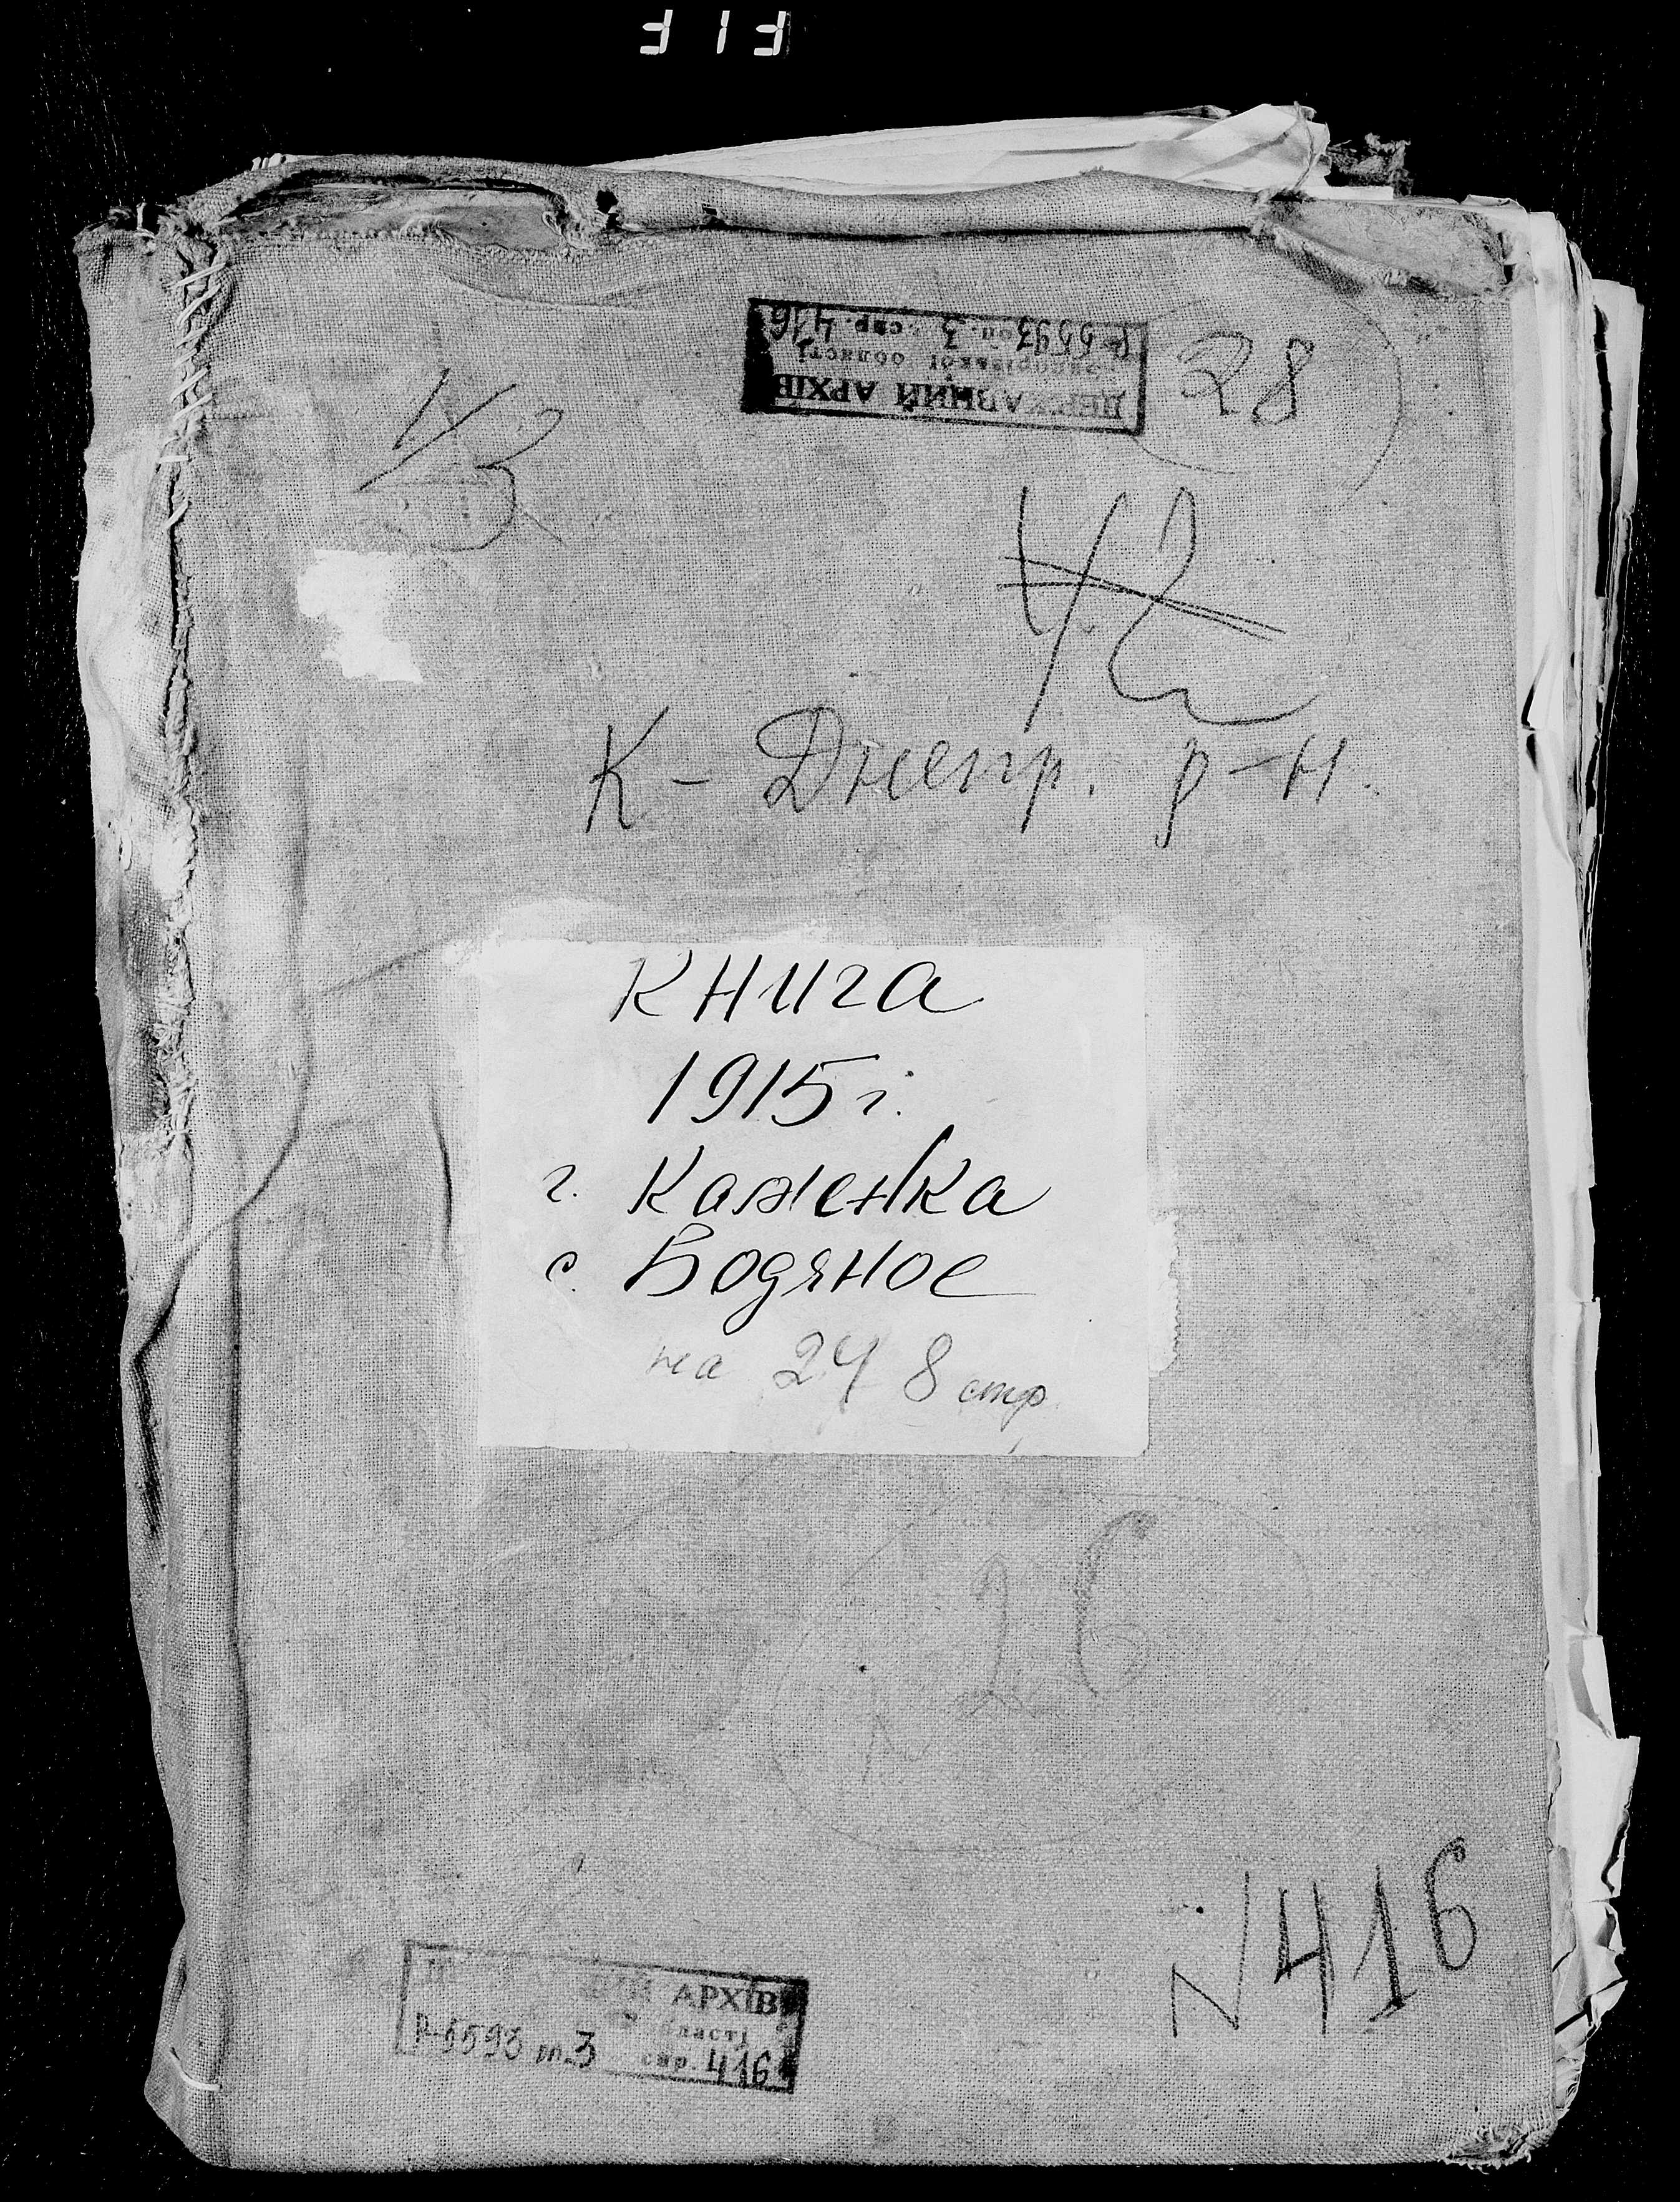 F 1 F
ДЕРЖАВНИЙ АРХІВ
Запорізької області
Р-5593 оп. 3 спр. 416
28
1/3
42
К- Днепр. р-н.
Книга
1915 г.
г. Каменка
с. Водяное
на 248 стр
26
N416
АРХІВ
області
Р-5593 оп. 3 спр. 416